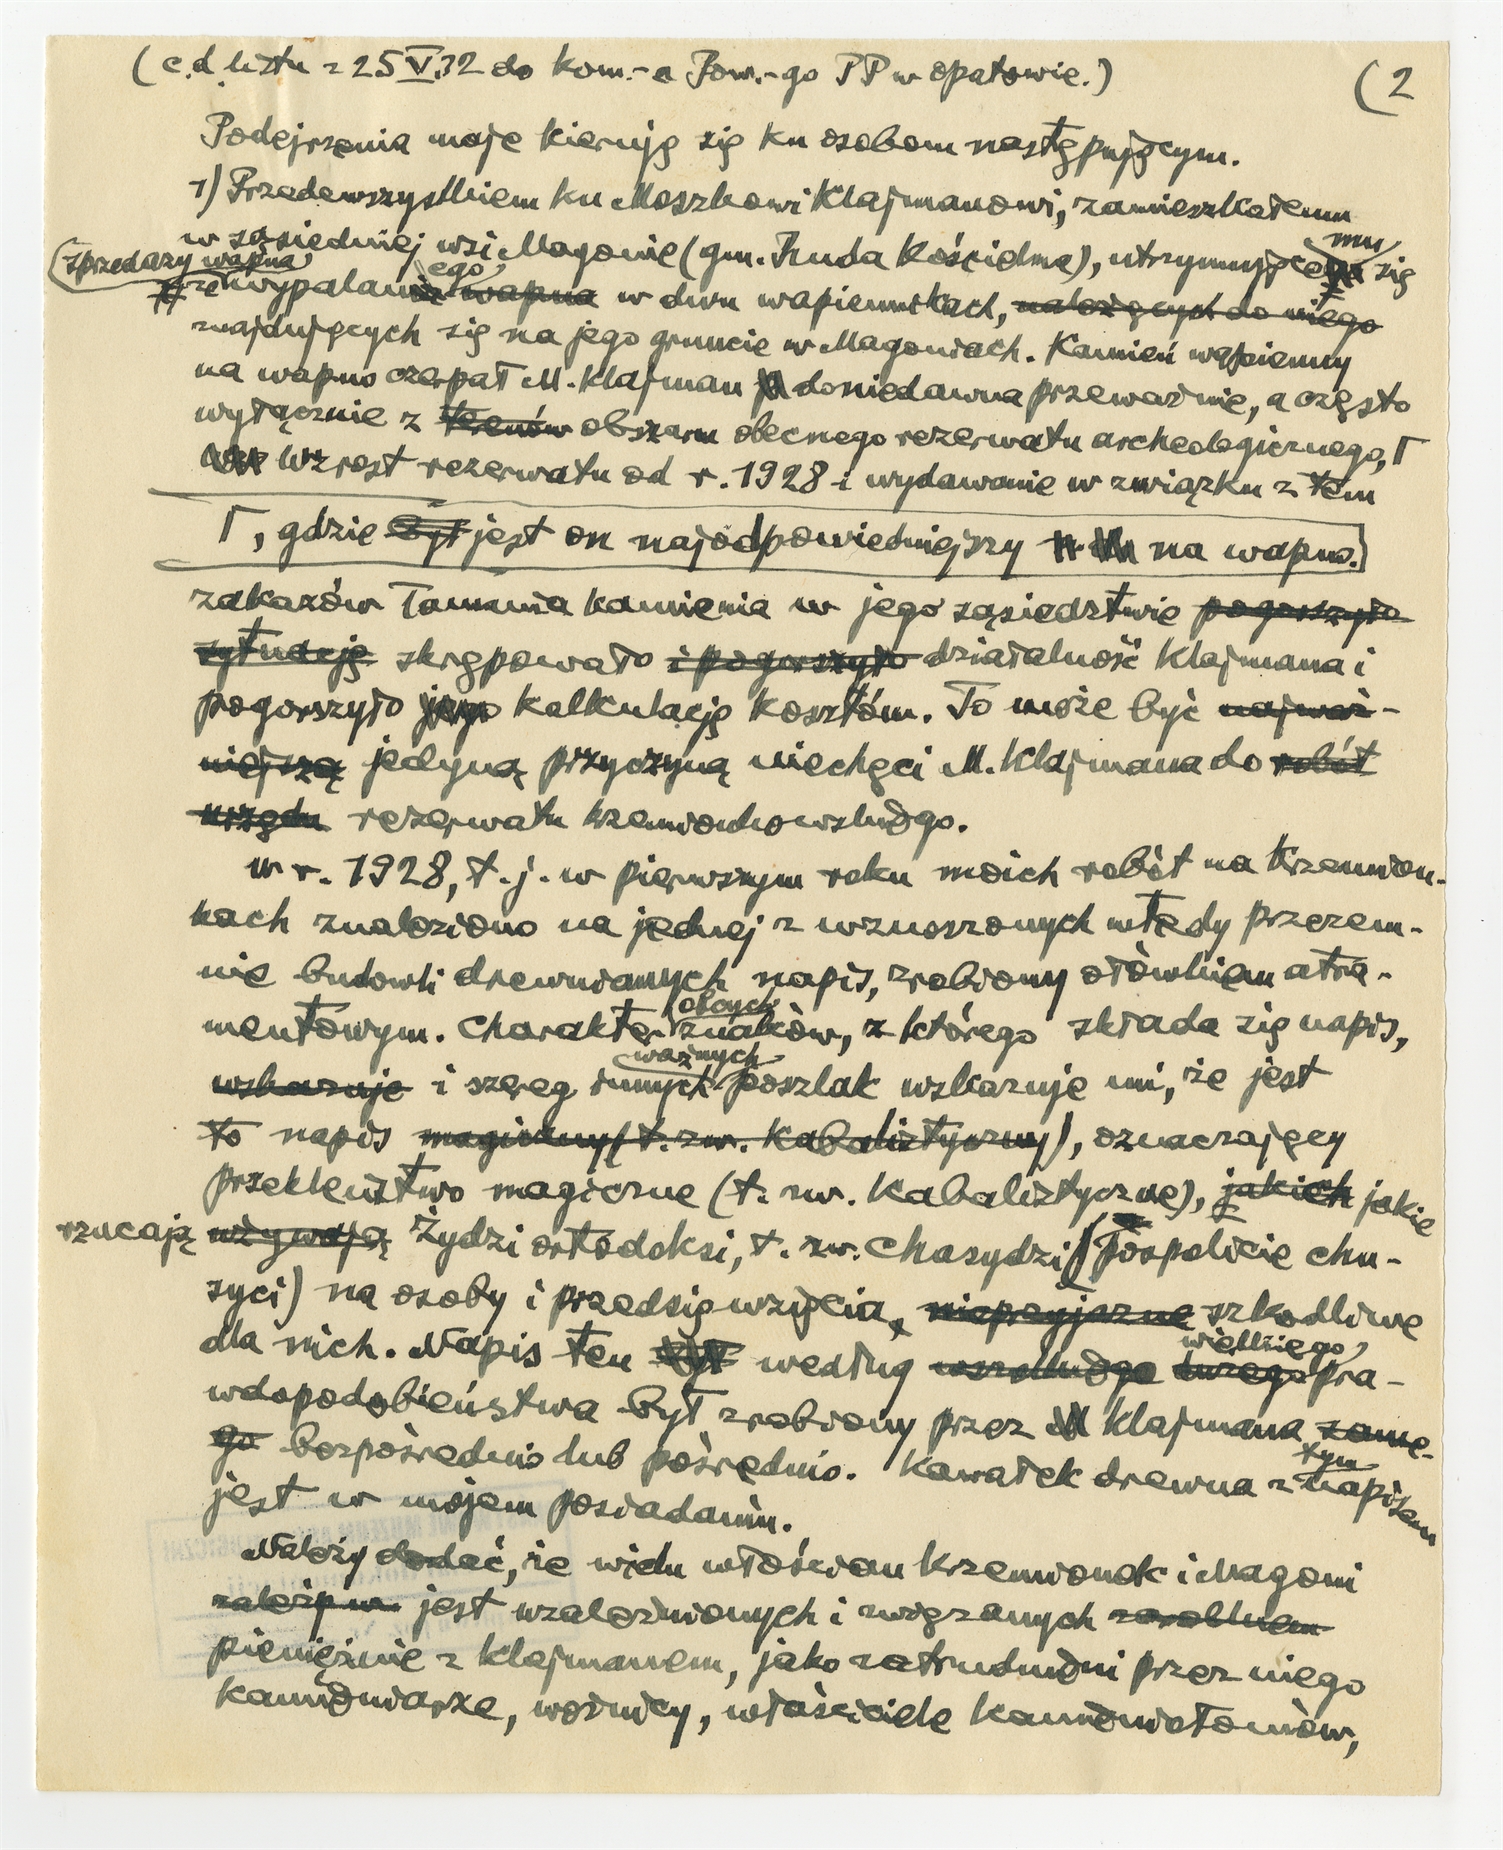 (c.d. listu z 25 V.32 do kom.-a Pow.-go PP w Opatowie.)
(2
Podejrzenia moje kierują się ku osobom następującym.
1) Przedewszystkiem ku Moszkowi Klajmanowi, zamieszkałemu
w sąsiedniej wsi Magonie (gm. Ruda Kościelna), utrzymującemu się
(sprzedaży wapna,
ze wypalanego wapna w dwu wapiennikach, należących do niego
znajdujących się na jego gruncie w Magoniach. Kamień wapienny
na wapno czerpał M. Klajman doniedawna przeważnie, a często
wyłącznie z terenów obszaru obecnego rezerwatu archeologicznego, Γ
Wzrost rezerwatu od r. 1928 i wydawanie w związku z tem
Γ, gdzie był jest on najodpowiedniejszy na wapno.
zakazów łamania kamienia w jego sąsiedztwie pogorszyło
sytuację skrępowało i pogorszyło działalność Klajmana i
pogorszyło jego kalkulację kosztów. To może być najważ-
niejszą jedyną przyczyną niechęci M. Klajmana do robót
urzędu rezerwatu krzemionkowskiego.
W r. 1928, t.j. w pierwszym roku moich robót na Krzemion-
kach znaleziono na jednej z wznoszonych wtedy przezem-
nie budowli drewnianych napis, zrobiony ołówkiem atra-
mentowym. Charakter obcych znaków, z którego składa się napis,
wskazuje i szereg innych ważnych poszlak wskazuje mi, że jest
to napis magiczny (t. zw. kabalistyczny), oznaczający
przekleństwo magiczne (t. zw. kabalistyczne), jakich jakie
rzucają używają Żydzi ortodoksi, t. zw. Chasydzi (pospolicie chu-
syci) na osoby i przedsięwzięcia, nieprzyjazne szkodliwe
dla nich. Napis ten był według wszelkiego wielkiego pra-
wdopodobieństwa był zrobiony przez Klajmana same-
go bezpośrednio lub pośrednio. Kawałek drewna z tym napisem
jest w mojem posiadaniu.
Należy dodać, że wielu włościan Krzemionek i Magoni
jest uzależnionych i związanych
pieniężnie z Klajmanem, jako zatrudnieni przez niego
kamieniarze, woźnicy, właściciele kamieniołomów,